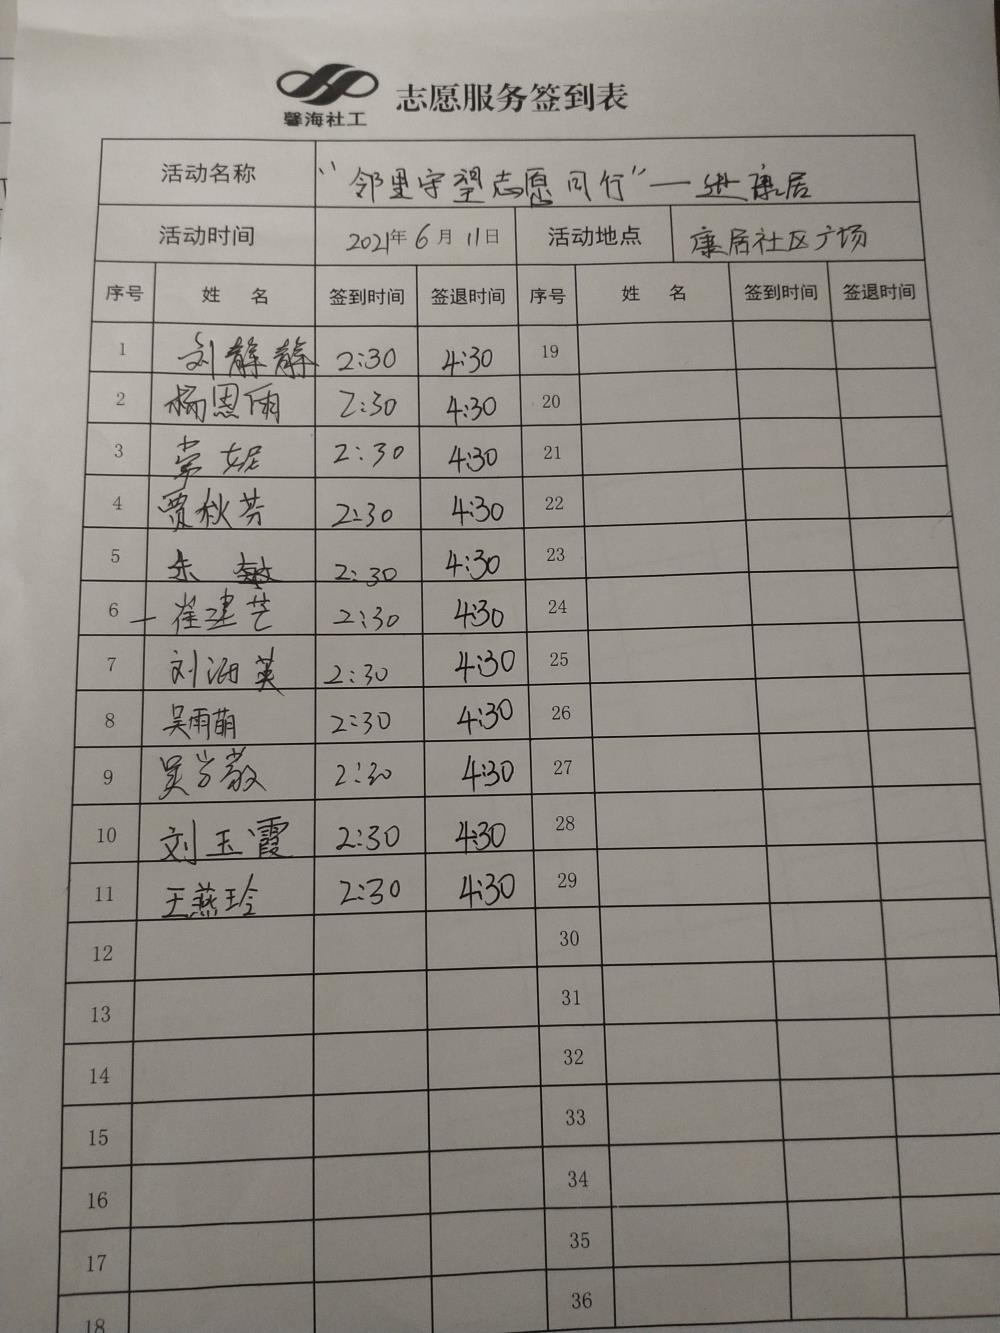 馨海社工
志愿服务签到表
活动名称 “邻里守望志愿同行”—进康居
活动时间 2021年6月11日 活动地点 康居社区广场
序号 姓 名 签到时间 签退时间 序号 姓 名 签到时间 签退时间
1 刘静静 2:30 4:30 19
2 杨恩雨 2:30 4:30 20
3 妮 2:30 4:30 21
4 贾秋芳 2:30 4:30 22
5 朱敏 2:30 4:30 23
6 崔建芝 2:30 4:30 24
7 刘海英 2:30 4:30 25
8 吴雨萌 2:30 4:30 26
9 吴学敏 2:30 4:30 27
10 刘玉霞 2:30 4:30 28
11 王燕玲 2:30 4:30 29
12 30
13 31
14 32
15 33
16 34
17 35
18 36